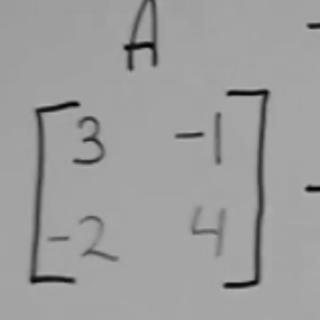 A
3 -1
-2 4